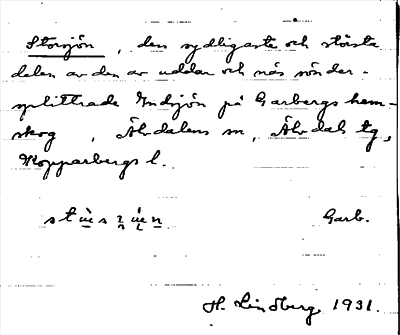 Storsjön, den sydligaste och största
delen av den av uddar och näs sönder-
splittrade Indsjön på Garbergs hem-
skog, Älvdalens sn, Älvdals tg,
Kopparbergs l.
Garb.
H. Lindberg 1931.